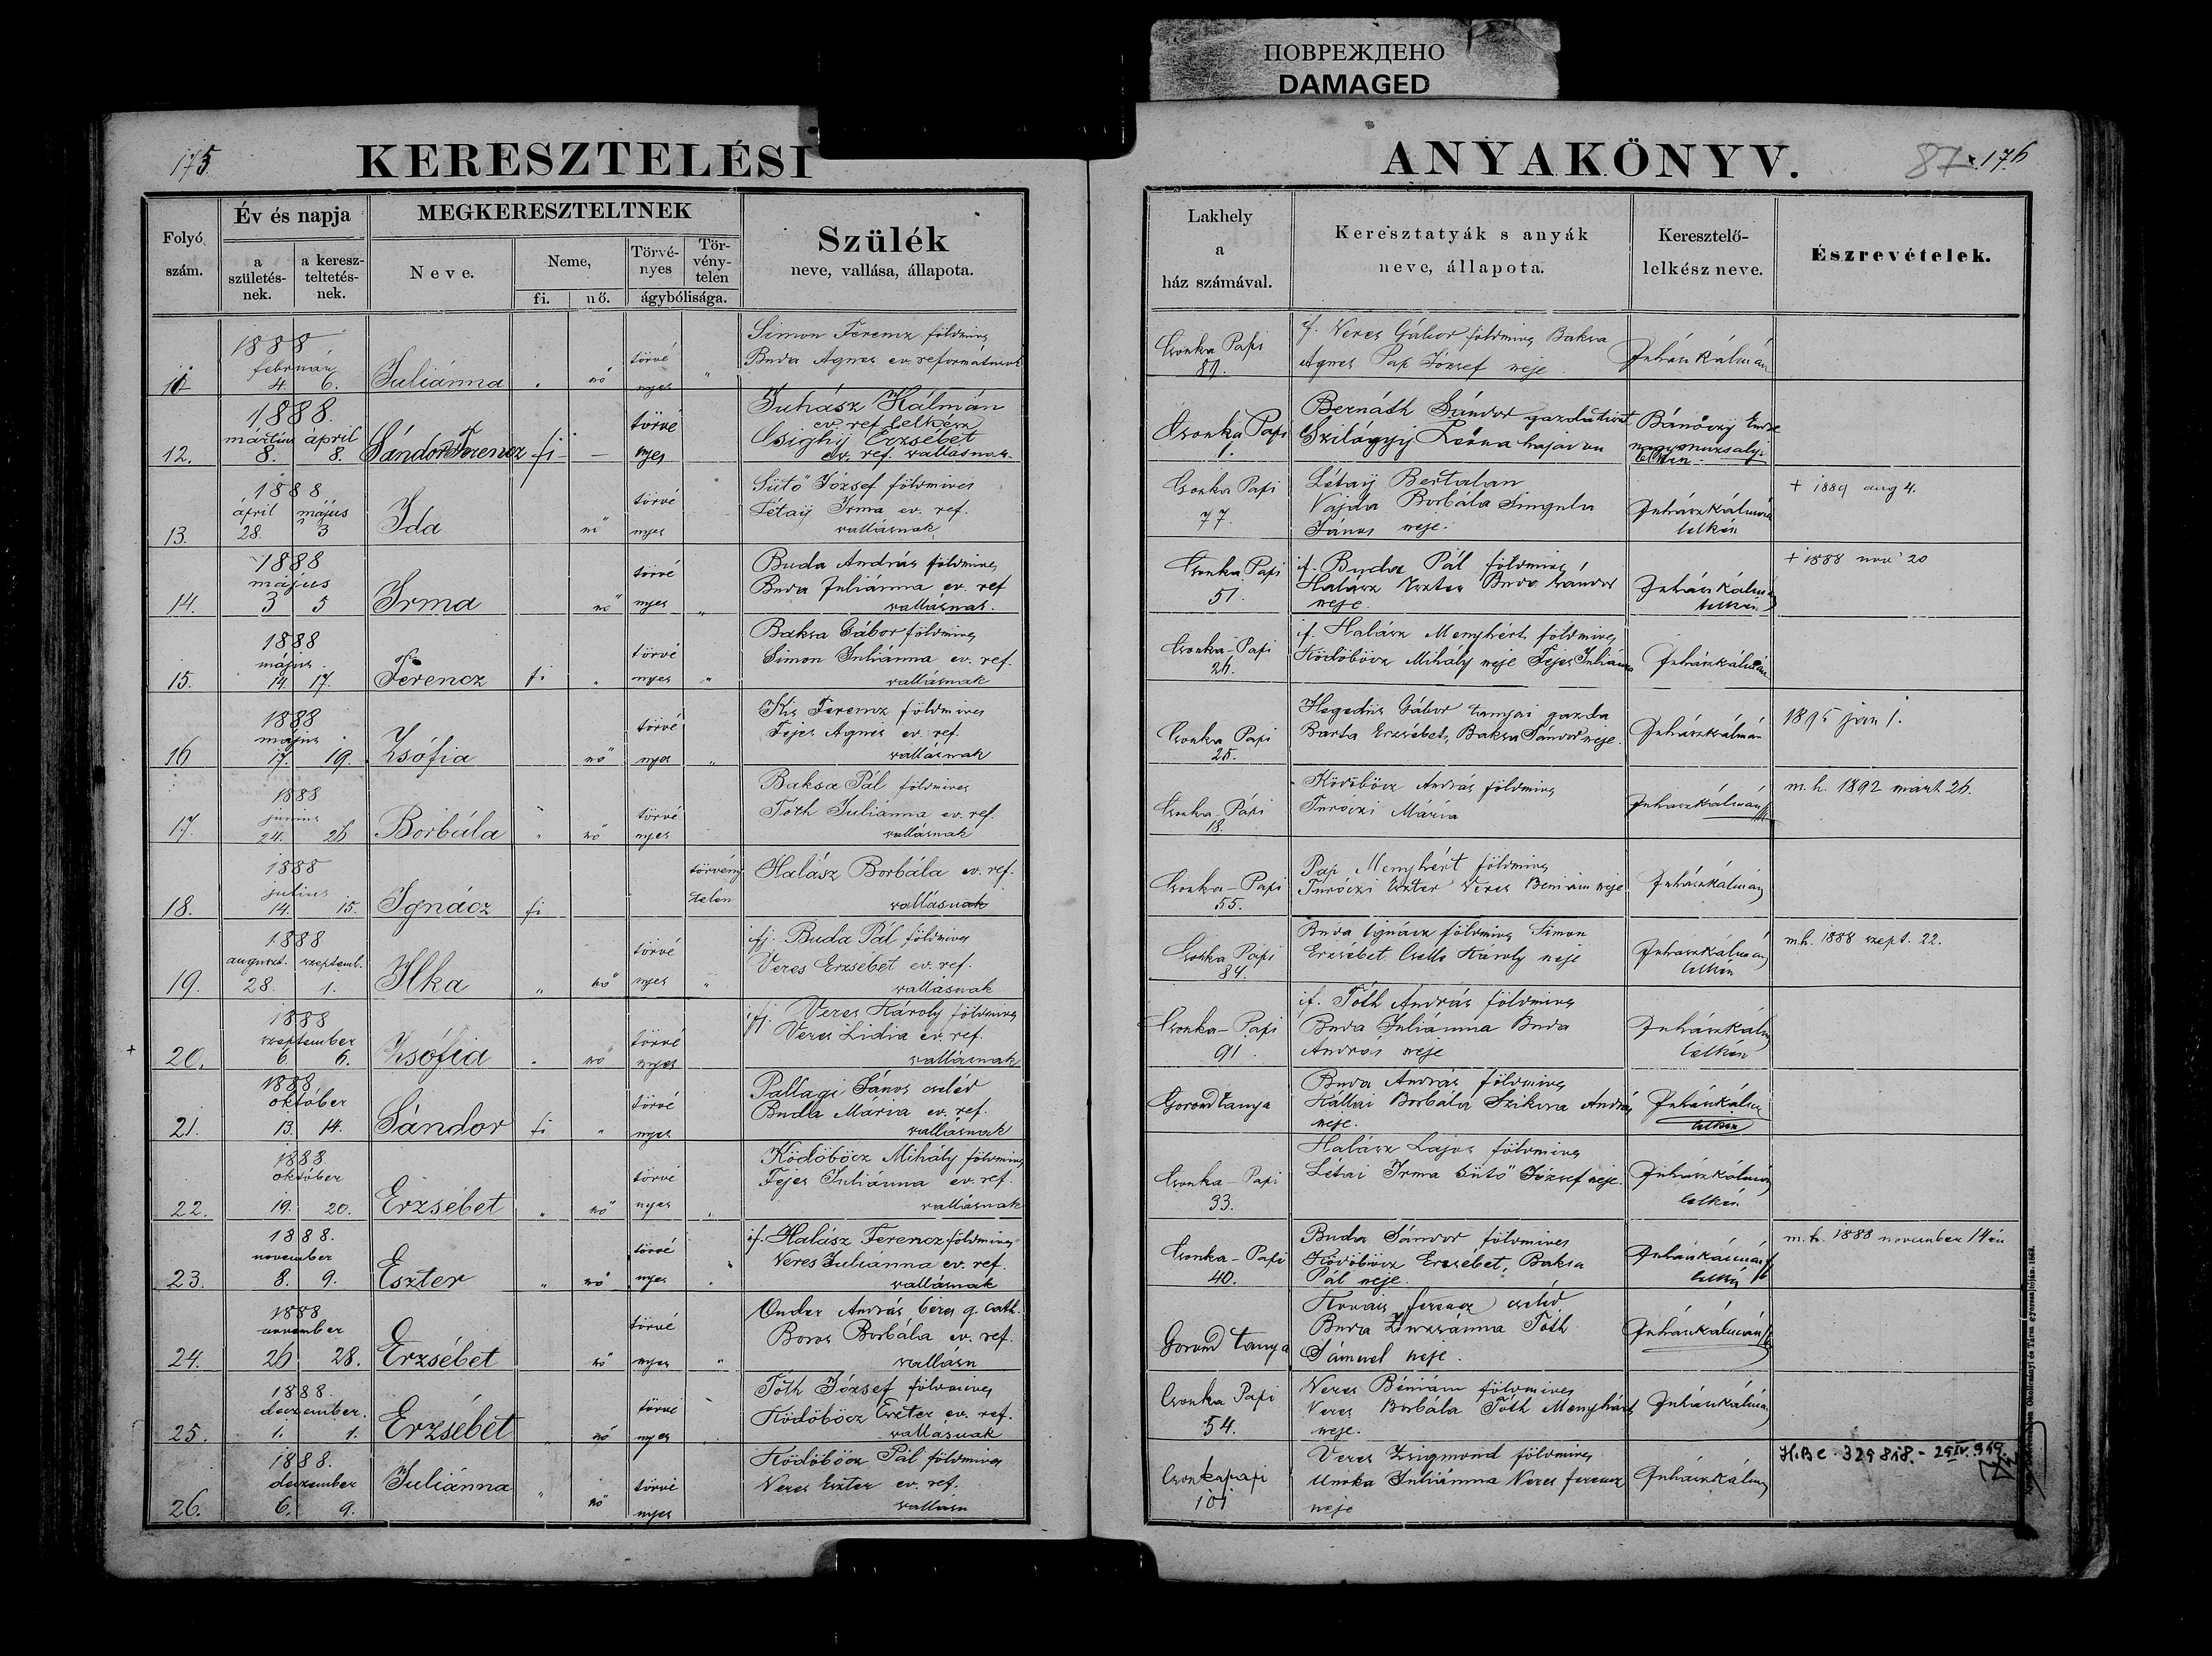 ПОВРЕЖДЕНО
DAMAGED
175
KERESZTELÉSI
Folyó szám.
Év és napja
a születés-nek.
a keresz-teltetés-nek.
MEGKERESZTELTNEK
Neve.
Neme,
fi.
nő.
Törvé-nyes
Tör-vény-telen
ágybólisága.
Szülék
neve, vallása, állapota.
11 1888 február 4. 6. Juliánna " nő törvé nyes "
Simon Ferencz földmives
Buda Ágnes ev. reformatusok
12. 1888. martius 8. april 8. Sándor Ferencz fi — törvé nyes
Juhász Kálmán
ev. ref. lelkész
Csighy Erzsébet
ev. ref. vallásnak.
13. 1888 április 28. május 3 Ida nő törvé nyes
Sütő József földmives
Létay Irma ev. ref.
vallásnak
14. 1888 május 3 5 Irma nő törvé nyes "
Buda András földmives
Buda Juliánna ev. ref
vallásnak.
15. 1888 május 14. 17. Ferencz fi " törvé nyes "
Baksa Gábor földmives
Simon Juliánna ev. ref.
vallásnak
16 1888 május 17. 19. Zsófia nő törvé nyes "
Kis Ferencz földmives
Fejes Ágnes ev. ref.
vallásnak
17. 1888 junius 24. 26 Borbála " nő törvé nyes
Baksa Pál földmives
Tóth Juliánna ev. ref.
vallásnak
18. 1888 julius 14. 15. Ignácz fi törvény telen
Halász Borbála ev. ref.
vallásnak
19. 1888 auguszt. 28. szeptemb. 1. Ilka " nő törvé nyes "
ifj. Buda Pál földmives
Veres Erzsébet ev. ref.
vallásnak
+ 20. 1888 szeptember 6. 6. Zsófia " nő törvé nyes
ifj. Veres Károly földmives
Veres Lidia ev. ref.
vallásnak
21. 1888 október 13. 14. Sándor fi " törvé nyes
Pallagi János cseléd
Buda Mária ev. ref.
vallásnak
22. 1888 október 19. 20. Erzsébet " nő törvé nyes "
Ködöböcz Mihály földmives
Fejes Juliánna ev. ref.
vallásnak
23. 1888. november 8. 9. Eszter " nő törvé nyes "
if. Halász Ferencz földmives
Veres Juliánna ev. ref.
vallásnak
24. 1888 november 26 28. Erzsébet nő törvé nyes "
András béres g. cath.
Boros Borbála ev. ref.
vallásu
25. 1888. deczember. 1. 1. Erzsébet " nő törvé nyes "
Tóth József földmives
Ködöböcz Eszter ev. ref.
vallásnak
26. 1888. deczember 6. 9. Juliánna " nő törvé nyes
Ködöböcz Pál földmives
Veres Eszter ev. ref.
vallásu
ANYAKÖNYV.
87 176
Lakhely
a
ház számával.
Keresztatyák s anyák
neve, állapota.
Keresztelő-
lelkész neve.
Észrevételek.
Csonka Papi
if. Veres Gábor földmives Baksa
Ágnes Pap József neje
Juhász Kálmán
Csonka Papi 1.
Bernáth Sándor gazdatiszt
Szilágyi Leona hajadon
Bánóczy Endre
nagymuzsalyi
Csonka Papi 77.
Létay Bertalan
Vajda Borbála
János neje.
Juhász Kálmán lelkész
+ 1889 aug 4.
Csonka Papi 51
if. Buda Pál földmives
Halász Eszter Buda Sándor
neje.
Juhász Kálmán lelkész
+ 1888 nov 20
Csonka-Papi 26.
if. Halász Menyhért földmives
Ködöböcz Mihály neje Fejes Juliánna
Juhász Kálmán
Csonka Papi 25.
Hegedüs Gábor tanyai gazda
Barta Erzsébet, Baksa Sándor neje.
Juhász Kálmán
1895 jan 1.
Csonka-Papi 18.
Ködöböcz András földmives
Turóczi Mária
Juhász Kálmán
m. h. 1892 márt 26.
Csonka-Papi 55.
Pap Menyhért földmives
Turóczi Eszter Veres Beniám neje
Juhász Kálmán
Csonka Papi 84.
Buda Ignácz földmives Simon
Erzsébet Károly neje
Juhász Kálmán lelkész
m.h. 1888 szept. 22.
Csonka-Papi 91.
if. Tóth András földmives
Buda Juliánna Buda
András neje
Juhász Kálmán lelkész
Gorond tanya
Buda András földmives
Kállai Borbála Szikora András
neje.
Juhász Kálmán lelkész
Csonka-Papi 33.
Halász Lajos földmives
Létai Irma Sütő József neje.
Juhász Kálmán lelkész
Csonka-Papi 40.
Buda Sándor földmives
Ködöböcz Erzsébet, Baksa
Pál neje.
Juhász Kálmán
m. h. 1888 november 14 én
Gorond tanya
Kovács Ferencz cseléd
Buda Zsuzsánna Tóth
Sámuel neje.
Juhász Kálmán
Csonka Papi 54.
Veres Béniám földmives
Veres Borbála Tóth Menyhárt
neje.
Juhász Kálmán
Csonkapapi 101
Veres Zsigmond földmives
Juliánna Veres Ferencz
neje
Juhász Kálmán
329818. - 29 IV. 949.